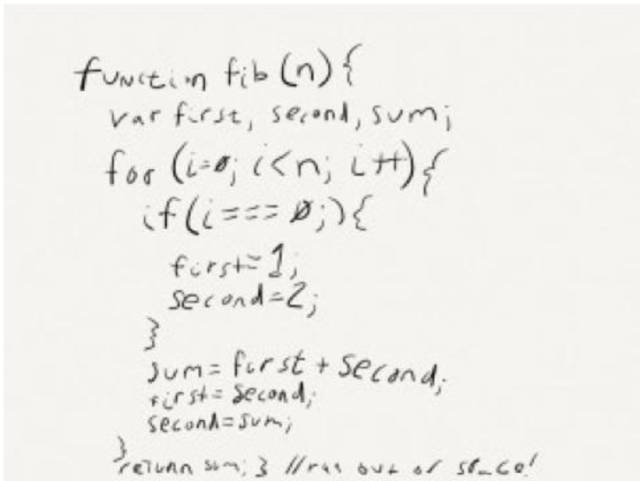 function fib (n) {
var first, second, sum;
for (i=0; i<n; i++){
if(i===0;){
first=1;
second=2;
}
sum = first + second;
first = second;
second=sum;
}
return sum; } //ran out of space!